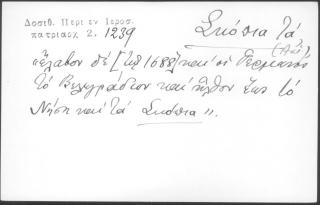 Δοσιθ. Περι εν Ιεροσ.
πατριαρχ 2. 1239
Σκόπια Τά
"ἔλαβον δὲ [τῷ 1688] καὶ οἱ Γερμανοὶ
τὸ Βελιγράδιον καὶ ἦλθον ἕως τὸ
Νήση καὶ τὰ Σκόπια".